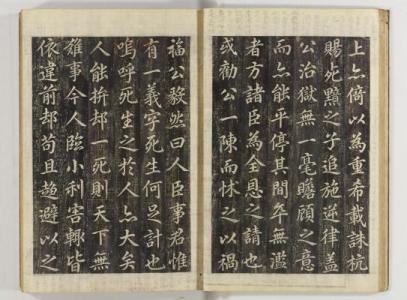 上亦倚以為重希載誅杭
賜死黥之子追施逆律蓋
公治獄無一毫瞻顧之意
而亦能平停其間卒無濫
者方諸臣為全恩之請也
或勸公一陳而怵之以禍
福公毅然曰人臣事君惟
有一義字死生何足計也
嗚呼死生之於人亦大矣
人能拚却一死則天下無
難事今人臨小利害輒皆
依違前却苟且趨避以之